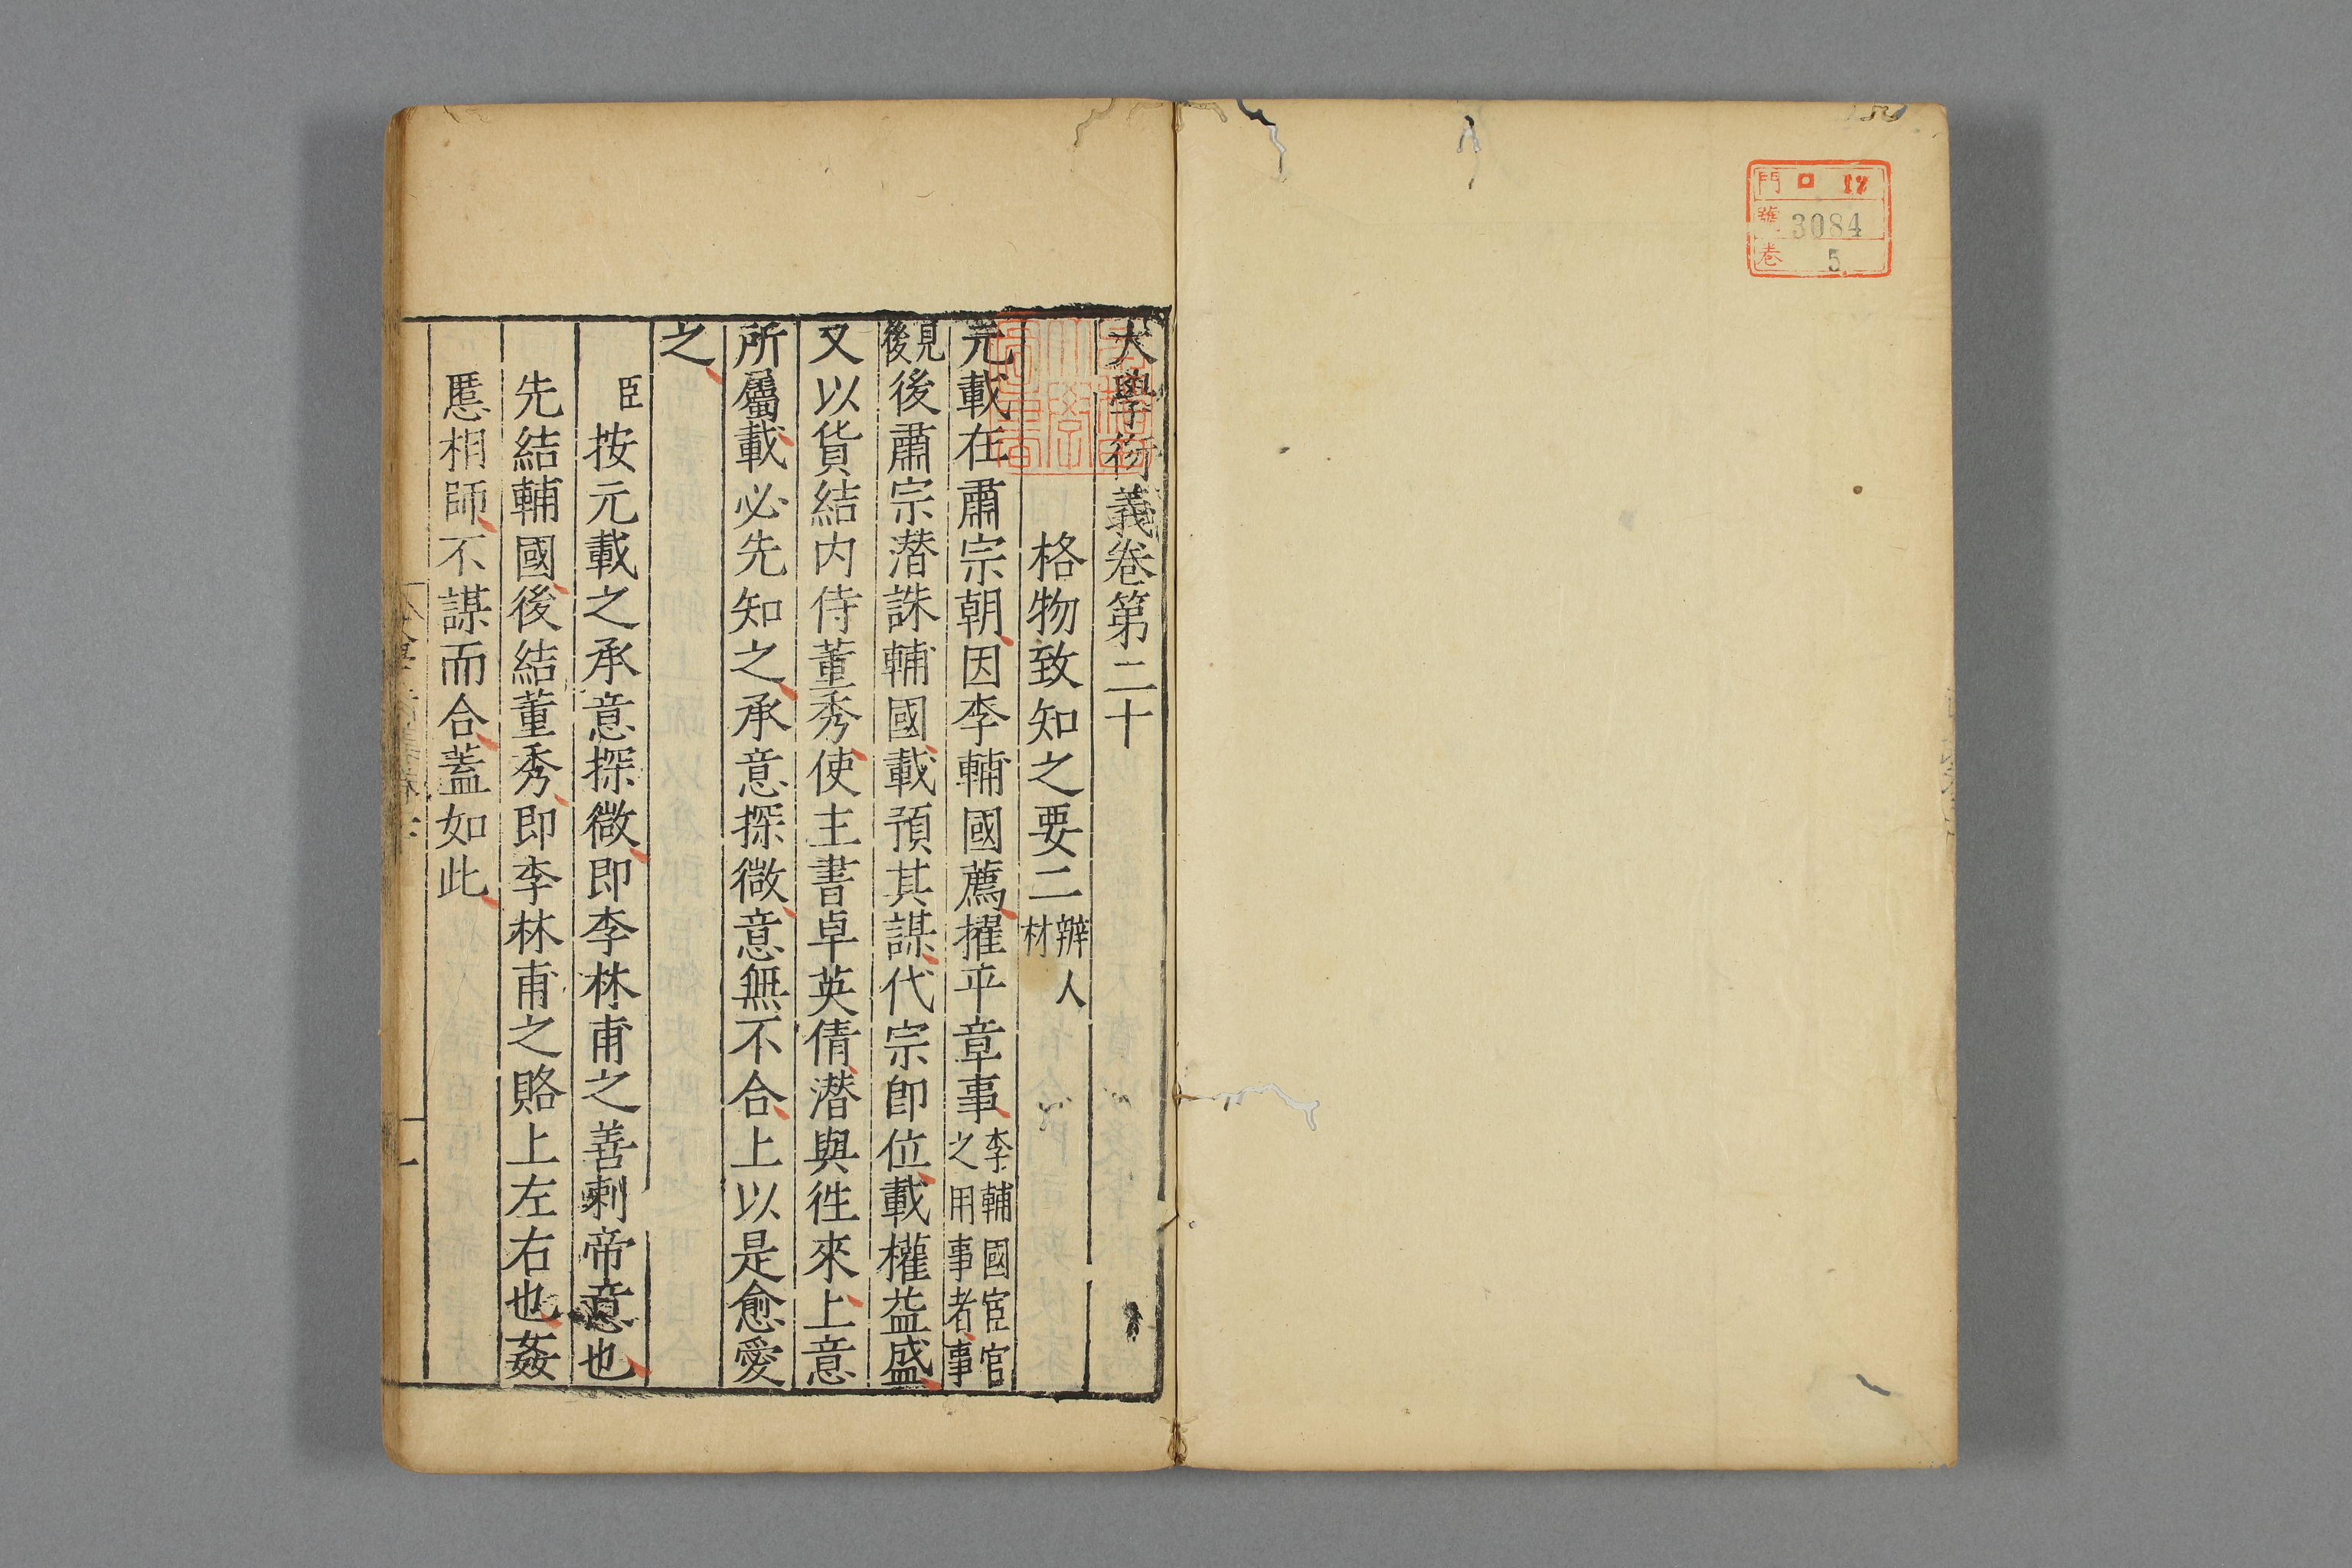 門 口 12
號 3084
卷 5
大學衍義卷第二十
格物致知之要二 辨人材
元載在肅宗朝因李輔國薦擢平章事 李輔國宦官之用事者事
見後 後肅宗潛誅輔國載預其謀代宗卽位載權益盛
又以貨結内侍董秀使主書卓英倩潜與徃來上意
所屬載必先知之承意探微意無不合上以是愈愛
之
臣按元載之承意探微即李林甫之善刺帝意也
先結輔國後結董秀即李林甫之賂上左右也姦
慝相師不謀而合蓋如此